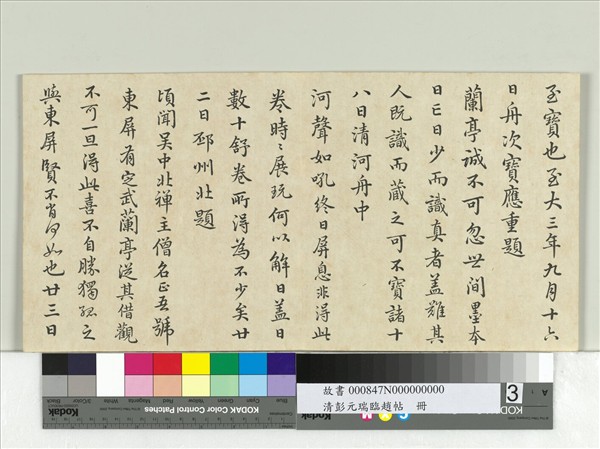 至寶也至大三年九月十六
日舟次寶應重題
蘭亭誠不可忽世间墨本
日亡日少而識真者盖難其
人既識而藏之可不寶諸十
八日清河舟中
河聲如吼終日屏息非得此
卷時〻展玩何以解日盖日
數十舒卷所得為不少矣廿
二日邳州北題
頃聞吳中北禪主僧名正吾號
東屏有定武蘭亭從其借觀
不可一旦得此喜不自勝獨孤之
與東屏賢不肖何如也廿三日
Blue Cyan Green Yellow Red Magenta White 3/Color Black
Kodak KODAK Color Control Patches
故書 000847N000000000
清彭元瑞臨趙帖 冊
3